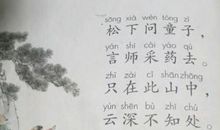 sōng xià wèn tóng zǐ
松下问童子，
yán shī cǎi yào qù
言师采药去。
zhǐ zài cǐ shān zhōng
只在此山中，
yún shēn bù zhī chù
云深不知处